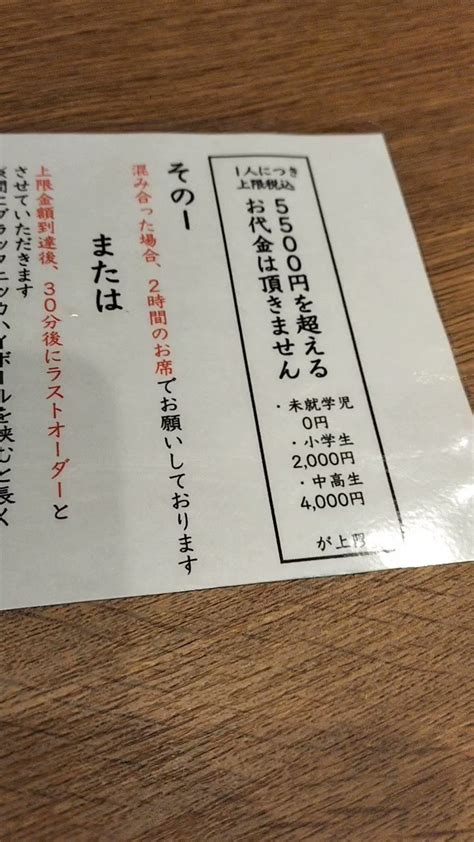 1人につき
上限税込
5500円を超える
お代金は頂きません
・未就学児
0円
・小学生
2,000円
・中高生
4,000円
が上限
その一
混み合った場合、2時間のお席でお願いしております
または
上限金額到達後、30分後にラストオーダーと
させていただきます
間にブラックニッカハイボールを挟むと長く